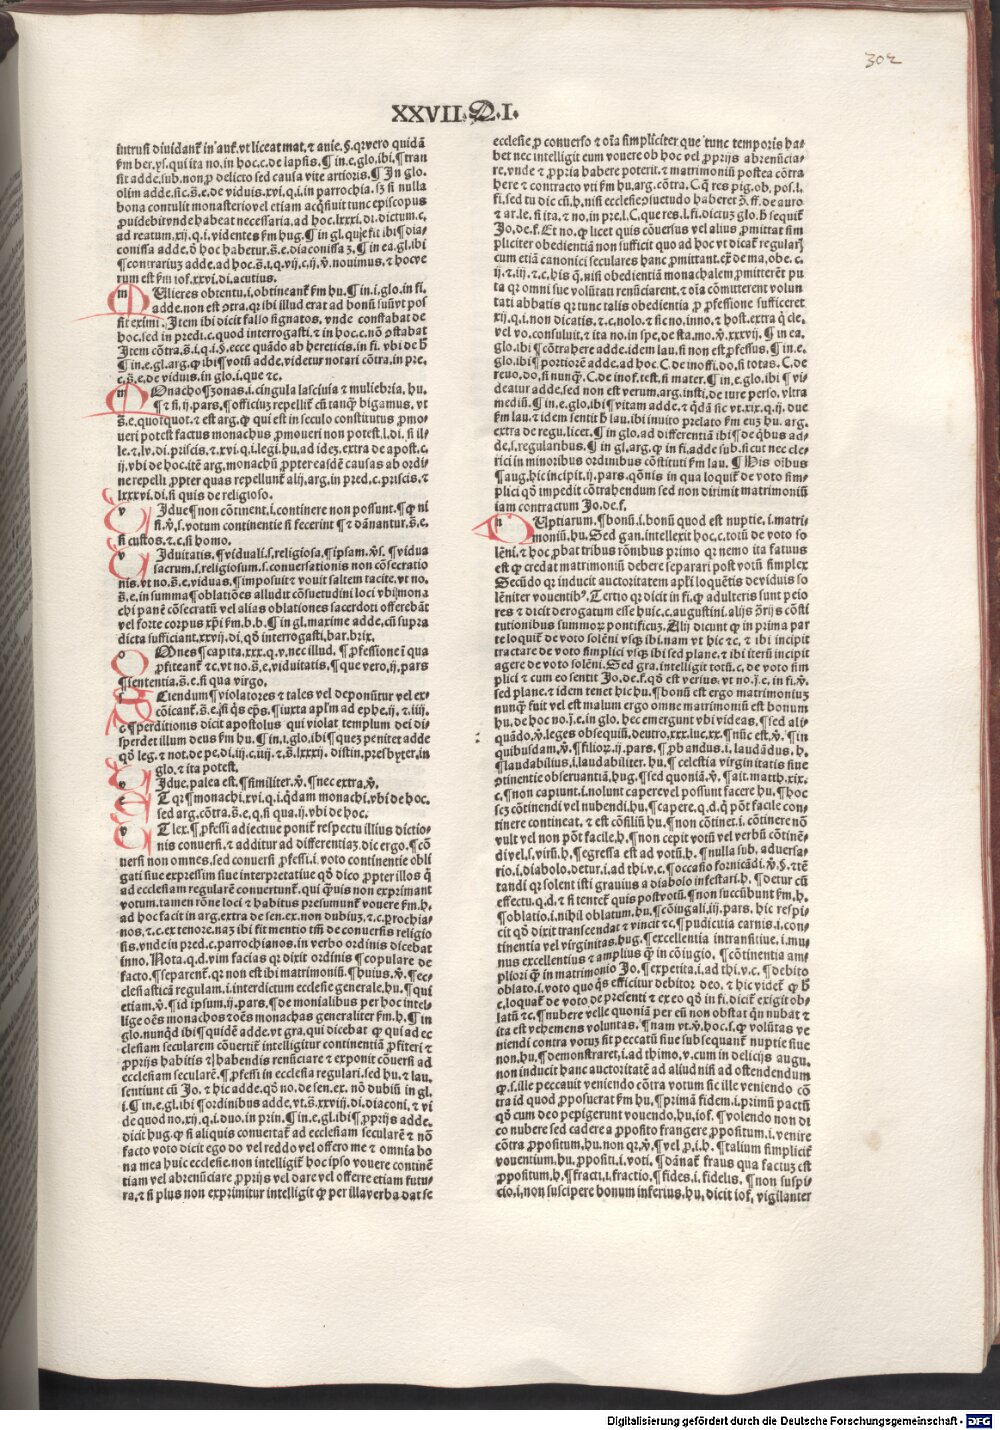 302
XXVII. Q. I.
intrusi diuidant᷑ in aut᷑.vt liceat mat.⁊ auie.§.qr vero quidā
ẜm ber.ys.qui ita no.in hoc.c.de lapsis.¶ in.e.glo.ibi.¶tran
sit adde.sub.non ꝓ delicto sed causa vite artioris.¶ In glo.
olim adde.sic.s̄.e.de viduis.xvi.q.i.in parrochia.sꝫ si nulla
bona contulit monasterio vel etiam acq̄siuit tunc episcopus
ꝓuidebit vnde habeat necessaria.ad hoc.lxxxi.di.dictum.c.
ad reatum.xij.q.i.videntes ẜm hug.¶ in gl.que fit ibi ¶dia-
conissa adde.ð hoc habetur.s̄.e.diaconissaꝫ.¶ in ea.gl.ibi
¶contrariuꝫ adde.ad hoc.s̄.i.q.vij.c.ij.v̄.nouimus.⁊ hoc ve
rum est ẜm ios.xxvi.di.acutius.
m Ulieres obtentu.i.obtineant᷑ ẜm hu.¶ in.i.glo.in fi.
adde.non est ꝯtra.qr ibi illud erat ad bonū suū vt pos
sit eximi.Item ibi dicit fallo signatos.vnde constabat de
hoc.sed in predi.c.quod interrogasti.⁊ in hoc.c.nō ꝯstabat
Item cōtra.s̄.i.q.i.§.ecce quādo ab hereticis.in fi.vbi de h̄
¶ in.e.gl.arg.ꝙ ibi ¶votū adde.videtur notari cōtra.in pre.
c.s̄.e.de viduis.in glo.i.que ⁊c.
m Onacho ¶zonas.i.cingula lasciuia ⁊ muliebria.hu.
¶ ⁊ si.ij.pars.¶officiuꝫ repellit᷑ cū tanq̄ bigamus.vt
s̄.e.quotquot.⁊ est arg.ꝙ qui est in seculo constitutus ꝓmo-
ueri potest factus monachus ꝓmoueri non potest.l.di.si il-
le.⁊ lv.di.priscis.⁊ xvi.q.i.legi.hu.ad ideꝫ.extra de apost.c.
ij.vbi de hoc.itē arg.monachū ꝓpter easdē causas ab ordi-
ne repelli ꝓpter quas repellunt᷑ alij.arg.in pred.c.priscis.⁊
lxxxvi.di.si quis de religioso.
v Idue ¶non cōtinent.i.continere non possunt.¶ ꝙ ni
si.v̄.s.votum continentie si fecerint ¶ ⁊ dānantur.s̄.e.
si custos.⁊.c.si homo.
v Iduitatis.¶viduali.s.religiosa.¶ipsam.v̄s.¶vidua
sacrum.s.religiosum.s.conuersationis non cōsecratio
nis.vt no.s̄.e.viduas.¶imposuit ⁊ vouit saltem tacite.vt no.
s̄.e.in summa ¶oblatiōes alludit cōsuetudini loci vbi mona
chi panē cōsecratū vel alias oblationes sacerdoti offerebāt
vel forte corpus xp̄i ẜm.h.b.¶ in gl.maxime adde.cū supra
dicta sufficiant.xxvij.di.qð interrogasti.bar.brix.
o Mnes ¶capita.xxx.q.v.nec illud.¶ ꝓfessione ī qua
ꝓfiteant᷑ ⁊c.vt no.s̄.e.viduitatis.¶que vero.ij.pars
¶sententia.s̄.e.si qua virgo.
s Ciendum ¶violatores ⁊ tales vel deponūtur vel ex-
cōicant᷑.s̄.e.si q̄s ep̄s.¶iuxta apl'm ad ephe.ij.⁊.iiij.
c.¶perditionis dicit apostolus qui violat templum dei di-
sperdet illum deus ẜm hu.¶ in.i.glo.ibi ¶queꝫ peniter adde
qð leg.⁊ not.de pe.di.iij.c.iiij.⁊ s̄.lxxxij.distin.presbyter.in
glo.⁊ ita potest.
v Idue.palea est.¶similiter.v̄.¶nec extra.v̄.
e T qr ¶monachi.xvi.q.i.q̄dam monachi.vbi de hoc.
sed arg.cōtra.s̄.e.q.si qua.ij.vbi de hoc.
v T lex.¶ ꝓfessi adiectiue ponit᷑ respectu illius dictio-
nis conuersi.⁊ additur ad differentiaꝫ.dic ergo.¶cō
uersi non omnes.sed conuersi ꝓfessi.i.voto continentie obli
gati siue expressim siue interpretatiue qð dico ꝓpter illos q̄
ad ecclesiam regularē conuertunt᷑.qui q̄uis non exprimant
votum.tamen rōne loci ⁊ habitus presumunt᷑ vouere ẜm.h.
ad hoc facit in arg.extra de sen.ex.non dubiuꝫ.⁊.c.ꝑrochia-
nos.⁊.c.ex tenore.naꝫ ibi fit mentio tm̄ de conuersis religio
sis.vnde in pred.c.parrochianos.in verbo ordinis dicebat
inno.Nota.q.d.vim facias qr dixit ordinis ¶copulare de
facto.¶separent᷑.qr non est ibi matrimoniū.¶huius.v̄.¶ec-
clesiasticā regulam.i.interdictum ecclesie generale.hu.¶qui
etiam.v̄.¶id ipsum.ij.pars.¶de monialibus per hoc intel-
lige oēs monachos ⁊ oēs monachas generaliter ẜm.h.¶ in
glo.nunq̄d ibi ¶quidē adde.vt gra.qui dicebat ꝙ qui ad ec
clesiam secularem cōuertit᷑ intelligitur continentiā ꝓfiteri ⁊
ꝓprijs habitis ⁊ habendis renūciare ⁊ exponit cōuersi ad
ecclesiam secularē.¶ ꝓfessi in ecclesia regulari.sed hu.⁊ lau.
sentiunt cū Jo.⁊ hic adde.qð no.de sen.ex.nō dubiū in gl.
i.¶ in.e.gl.ibi ¶ordinibus adde.vt.s̄.xxviij.di.diaconi.⁊ vi
de quod no.xij.q.i.duo.in prin.¶ in.e.gl.ibi ¶ꝓprijs adde.
dicit hug.ꝙ si aliquis conuertat᷑ ad ecclesiam secularē ⁊ nō
facto voto dicit ego do vel reddo vel offero me ⁊ omnia bo
na mea huic ecclesie.non intelligit᷑ hoc ipso vouere continē
tiam vel abrenūciare ꝓprijs vel dare vel offerre etiam futu-
ra.⁊ si plus non exprimitur intelligit ꝙ per illa verba dat se
ecclesie ꝓ conuerso ⁊ oīa simpliciter que tunc temporis ha-
bet nec intelligit eum vouere ob hoc vel ꝓprijs abrenūcia-
re.vnde ⁊ ꝓpria habere poterit.⁊ matrimoniū postea cōtra
here ⁊ contracto vti ẜm hu.arg.cōtra.C.q̄ res pig.ob.pos.l.
fi.sed tu dic cū.h.nisi ecclesie ꝯsuetudo haberet ꝯ.ff.de auro
⁊ ar.le.si ita.⁊ no.in pre.l.C.que res.l.fi.dictuꝫ glo.h̄ sequit᷑
Jo.de.f.Et no.ꝙ licet quis cōuersus vel alius ꝓmittat sim
pliciter obedientiā non sufficit quo ad hoc vt dicat᷑ regularꝭ
cum etiā canonici seculares hanc ꝓmittant.ex̄ de ma.obe.c.
ij.⁊.iij.⁊.c.his q̄.nisi obedientiā monachalem ꝓmitterēt pu
ta qr omni sue volūtati renūciarent.⁊ oīa cōmitterent volun
tati abbatis qr tunc talis obedientia ꝓ ꝓfessione sufficeret
xij.q.i.non dicatis.⁊.c.nolo.⁊ sic no.inno.⁊ host.extra q̄ cle.
vel vo.consuluit.⁊ ita no.in spe.de sta.mo.v̄.xxxvij.¶ in ea.
glo.ibi ¶cōtrahere adde.idem lau.si non est ꝓfessus.¶ in.e.
glo.ibi ¶portiorē adde.ad hoc.C.de inoffi.do.si totas.C.de
reuo.do.si nunq̄.C.de inof.test.si mater.¶ in.e.glo.ibi ¶vi-
deatur adde.sed non est verum.arg.insti.de iure perso.vltra
mediū.¶ in.e.glo.ibi ¶vitam adde.⁊ q̄dā sic vt.xix.q.ij.due
ẜm lau.⁊ idem sentit h̄ lau.ibi inuito prelato ẜm euꝫ hu.arg.
extra de regu.licet.¶ in glo.ad differentiā ibi ¶de q̄bus ad-
de.s.regularibus.¶ in gl.arg.ꝙ in fi.adde sub.sicut nec cle-
rici in minoribus ordinibus cōstituti ẜm lau.¶ His oībus
¶aug.hic incipit.ij.pars.qōnis in qua loquit᷑ de voto sim-
plici qð impedit cōtrahendum sed non dirimit matrimoniū
iam contractum Jo.de.f.
n Uptiarum.¶bonū.i.bonū quod est nuptie.i.matri-
moniū.hu.Sed gan.intellexit hoc.c.totū de voto so
lēni.⁊ hoc ꝓbat tribus rōnibus primo qr nemo ita fatuus
est ꝙ credat matrimoniū debere separari post votū simplex
Secūdo qr inducit auctoritatem apl'i loquētis de viduis so
lēniter vouentibꝰ.Tertio qr dicit in fi.ꝙ adulteris sunt peio
res ⁊ dicit derogatum esse huic.c.augustini.alijs ꝯrijs cōsti
tutionibus summoꝝ pontificuꝫ.Alij dicunt ꝙ in prima par
te loquit᷑ de voto solēni vsqꝫ ibi.nam vt hic ⁊c.⁊ ibi incipit
tractare de voto simplici vsqꝫ ibi sed plane.⁊ ibi iterū incipit
agere de voto solēni.Sed gra.intelligit totū.c.de voto sim
plici ⁊ cum eo sentit Jo.de.f.qð est verius.vt no.j̄.e.in fi.v̄.
sed plane.⁊ idem tenet hic hu.¶bonū est ergo matrimoniuꝫ
nunq̄ fuit vel est malum ergo omne matrimoniū est bonum
hu.de hoc no.j̄.e.in glo.hec emergunt vbi videas.¶sed ali-
quādo.v̄.leges obsequiū.deutro.xxx.luc.xx.¶nūc est.v̄.¶in
quibusdam.v̄.¶filioꝝ.ij.pars.¶ꝓbandus.i.laudādus.h.
¶laudabilius.i.laudabiliter.hu.¶celestia virginitatis siue
ꝯtinentie obseruantiā.hug.¶sed quoniā.v̄.¶ait.matth.xix.
c.¶non capiunt.i.nolunt capere vel possunt facere hu.¶hoc
scꝫ cōtinendi vel nubendi.hu.¶capere.q.d.q̄ pōt facile con-
tinere contineat.⁊ est cōsiliū hu.¶non cōtinet.i.cōtinere nō
vult vel non pōt facile.h.¶non cepit votū vel verbū cōtinē-
di vel.s.virū.h.¶egressa est ad votū.h.¶nulla sub.aduersa-
rio.i.diabolo.detur.i.ad thi.v.c.¶occasio fornicādi.v̄.§.⁊tē
tandi qr solent isti grauius a diabolo infestari.h.¶detur cū
effectu.q.d.⁊ si tentet᷑ quis post votū.¶non succūbunt ẜm.h.
¶oblatio.i.nihil oblatum.hu.¶cōiugali.iij.pars.hic respi-
cit qð dixit transcendat ⁊ vincit ⁊c.¶pudicitia carnis.i.con-
tinentia vel virginitas.hug.¶excellentia intransitiue.i.mu-
nus excellentius ⁊ amplius q̄ in cōiugio.¶cōtinentia am-
pliori q̄ in matrimonio Jo.¶expetita.i.ad thi.v.c.¶debito
oblato.i.voto quo q̄s efficitur debitor deo.⁊ hic videt᷑ ꝙ h̄
c.loquat᷑ de voto de presenti ⁊ ex eo qð in fi.dicit᷑ exigit ob-
latū ⁊c.¶nubere velle quoniā per eū non obstat q̄n nubat ⁊
ita est vehemens voluntas.¶nam vt.v̄.hoc.s.ꝙ volūtas ve
niendi contra votuꝫ sit peccatū siue subsequant᷑ nuptie siue
non.hu.¶demonstraret.i.ad thimo.v.cum in delicijs augu.
non inducit hanc auctoritatē ad aliud nisi ad ostendendum
ꝙ.s.ille peccauit veniendo cōtra votum sic ille veniendo cō
tra id quod ꝓposuerat ẜm hu.¶primā fidem.i.primū pactū
qð cum deo pepigerunt vouendo.hu.ios.¶volendo non di
co nubere sed cadere a ꝓposito frangere ꝓpositum.i.venire
cōtra ꝓpositum.hu.non qr.v̄.¶vel ꝓ.i.h.¶talium simplicit᷑
vouentium.hu.ꝓpositi.i.voti.¶dānat᷑ fraus qua factuꝫ est
ꝓpositum.h.¶fracti.i.fractio.¶fides.i.fidelis.¶non suspi-
cio.i.non suscipere bonum inferius.hu.dicit ios.vigilanter
Digitalisierung gefördert durch die Deutsche Forschungsgemeinschaft - DFG